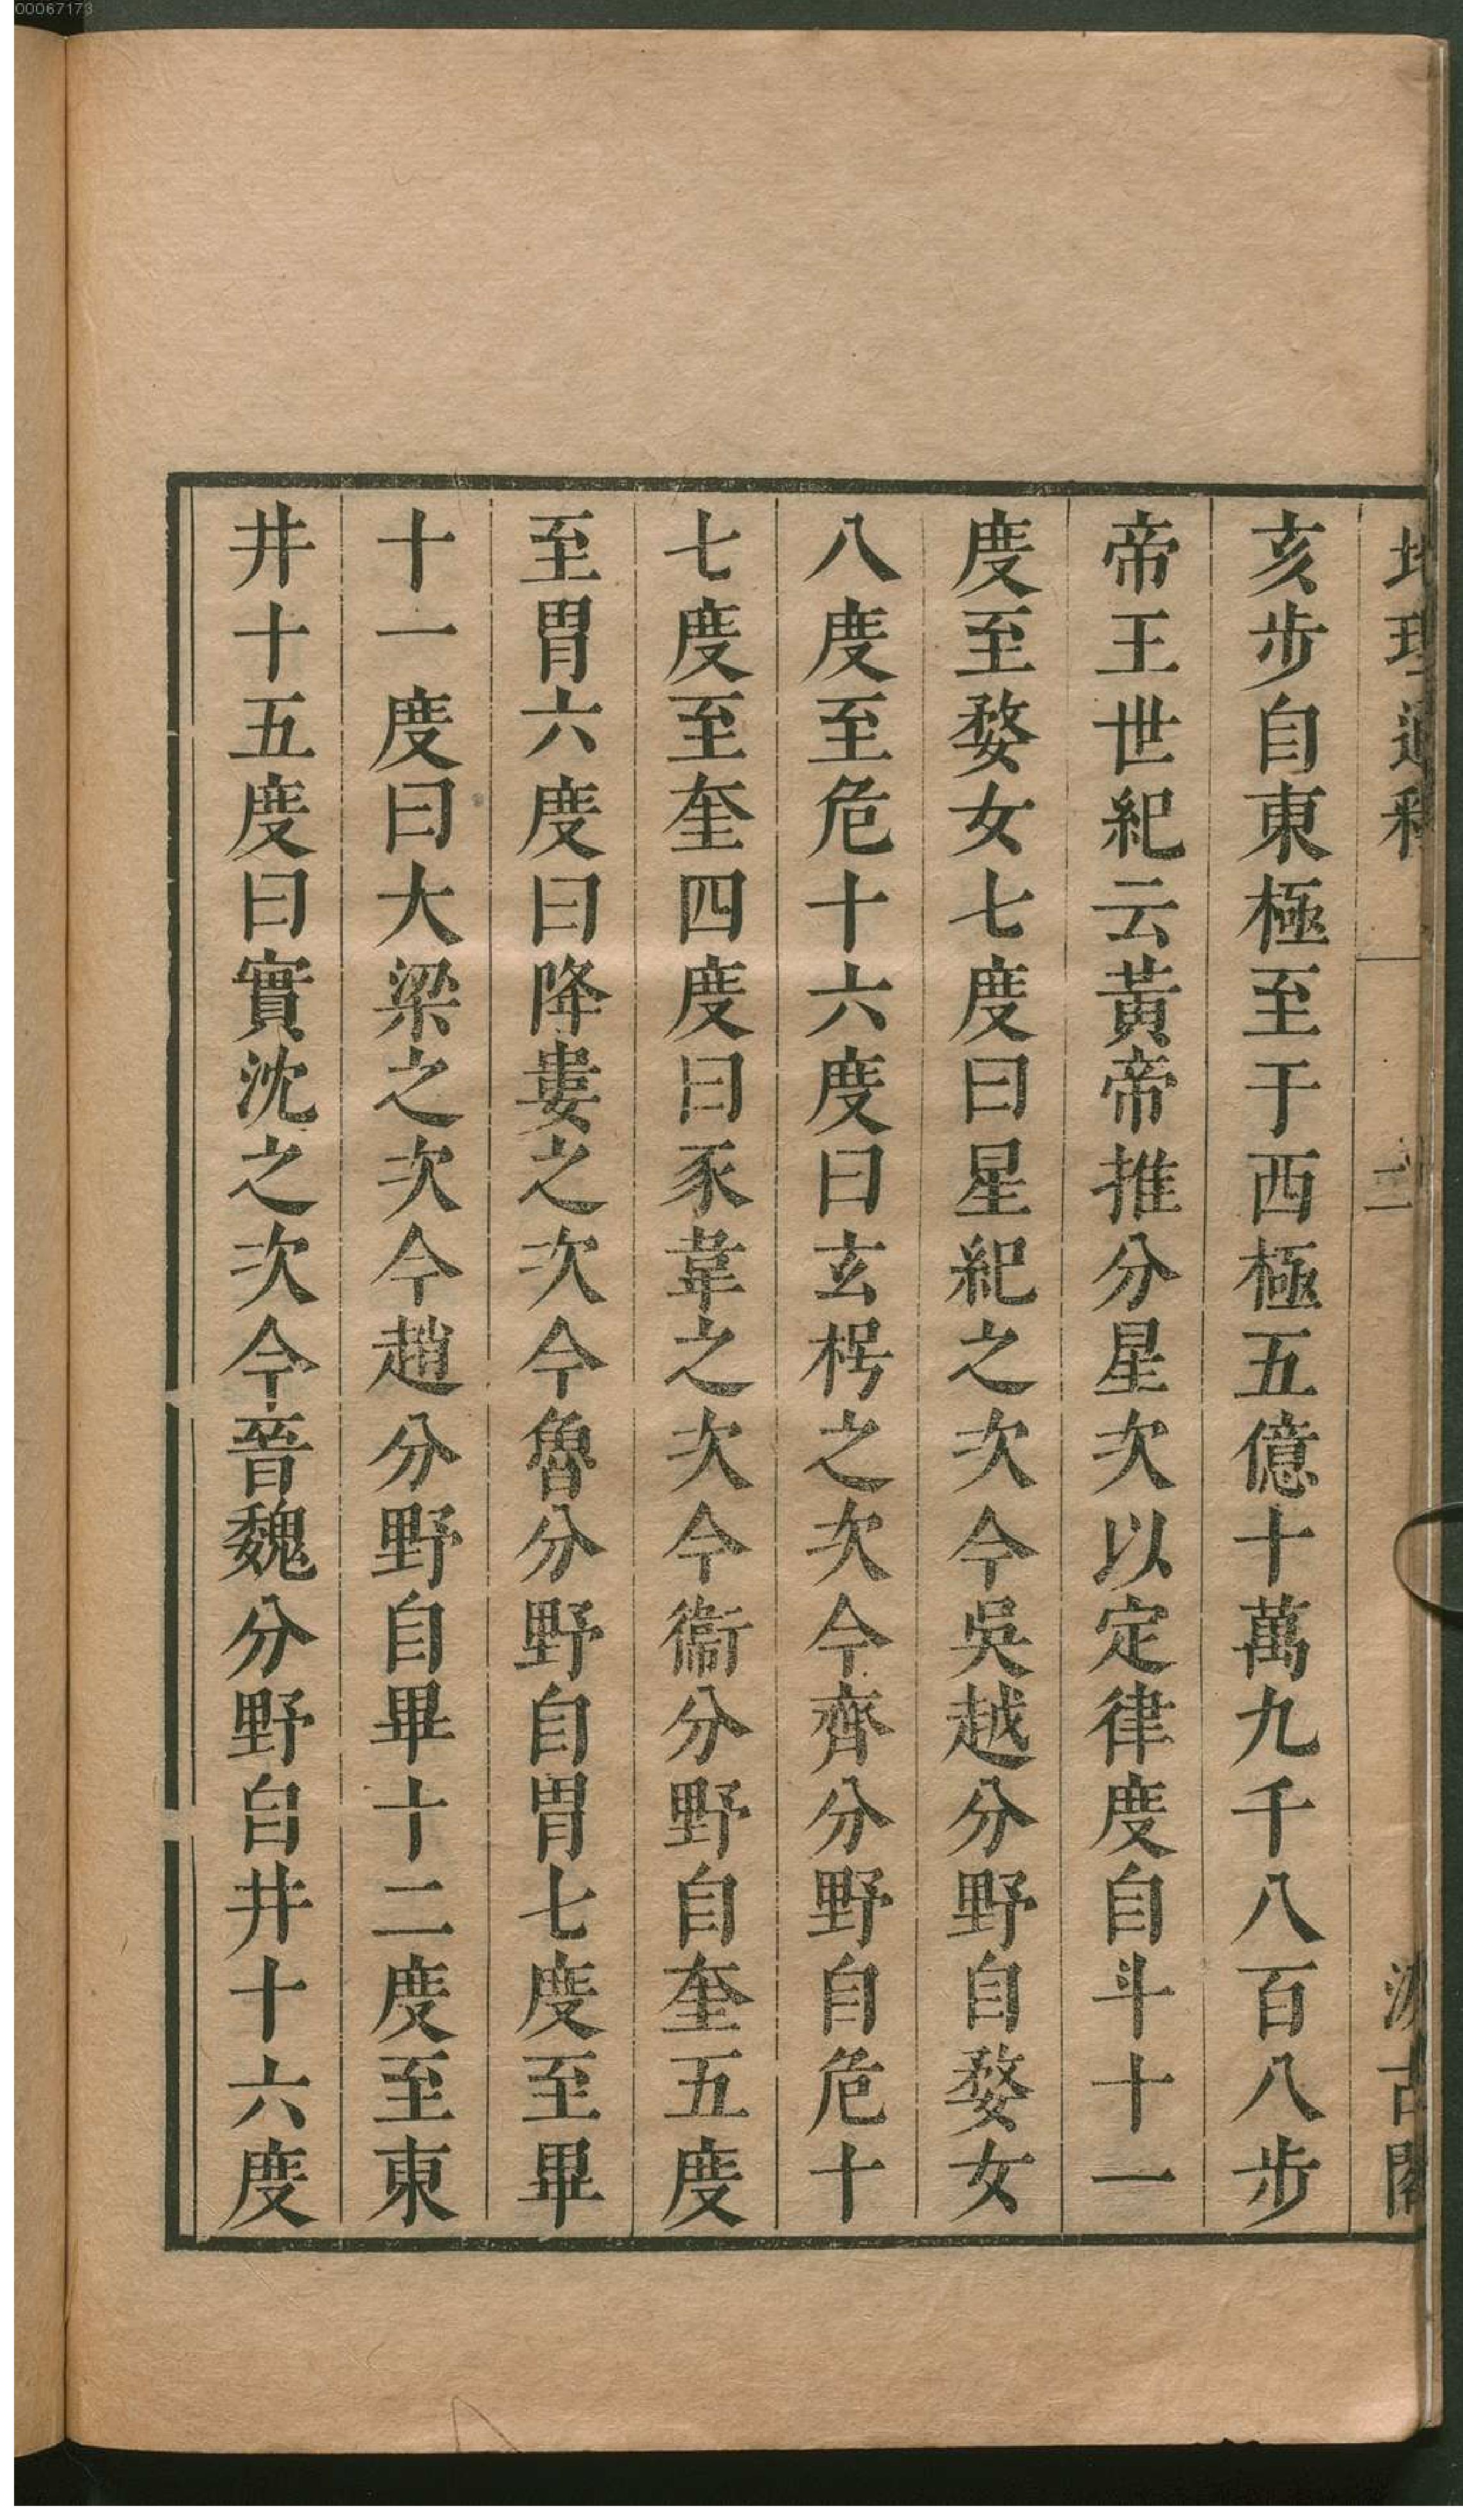 00067173
地理通釋 二 汲古閣
亥步自東極至于西極五億十萬九千八百八步
帝王世紀云黃帝推分星次以定律度自斗十一
度至婺女七度曰星紀之次今吳越分野自婺女
八度至危十六度曰玄枵之次今齊分野自危十
七度至奎四度曰豕韋之次今衞分野自奎五度
至胃六度曰降婁之次今魯分野自胃七度至畢
十一度曰大梁之次今趙分野自畢十二度至東
井十五度曰實沈之次今晉魏分野自井十六度